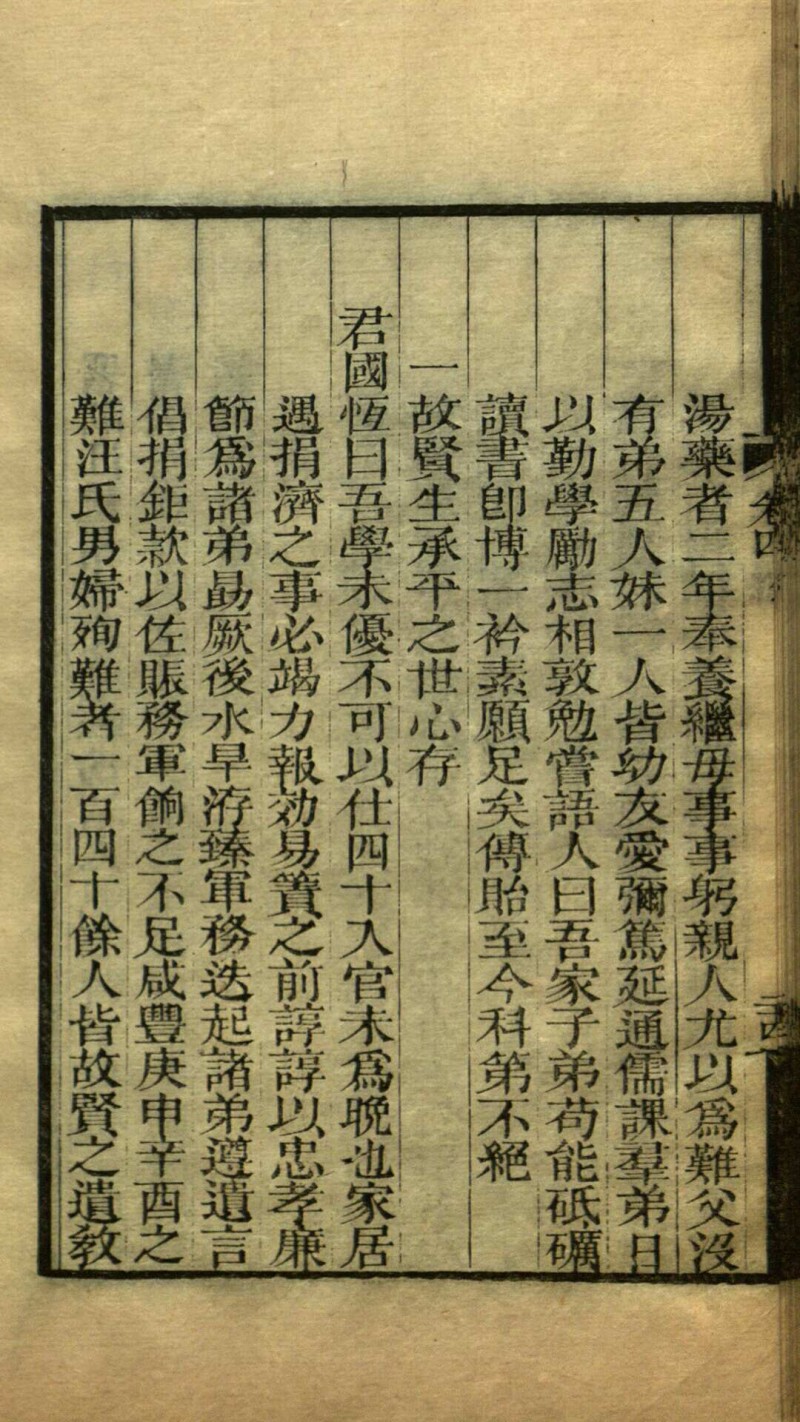 湯藥者二年奉養繼毋事事躬親人尤以爲難父沒
有弟五人妹一人皆幼友愛彌篤延通儒課羣弟日
以勤學勵志相敦勉嘗語人曰吾家子弟苟能砥礪
讀書卽博一衿素願足矣傳貽至今科第不絕
一故賢生承平之世心存
君國恆曰吾學未優不可以仕四十入官未爲晚也家居
遇捐濟之事必竭力報効易簀之前諄諄以忠孝廉
節爲諸弟勗厥後水旱洊臻軍務迭起諸弟遵遺言
倡捐鉅款以佐賑務軍餉之不足咸豐庚申辛酉之
難汪氏男婦殉難者一百四十餘人皆故賢之遺教